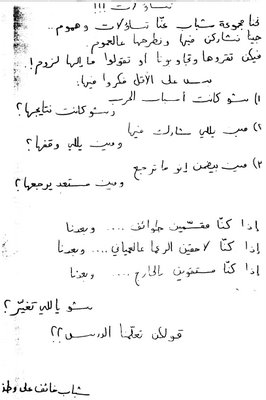 تساؤلات !!!
نحنا مجموعة شباب عنّا تساؤلات وهموم..
جينا نشاركن فيها ونطرحها عالعموم
فيكن تقروها وتجاوبونا أو تقولوا ما إلها لزوم!
بس على الأقل فكروا فيها:
١) شو كانت أسباب الحرب
وشو كانت نتايجها؟
٢) مين يللي شارك فيها
ومين يللي وقفها؟
٣) مين بيضمن إنو ما ترجع
ومين مستعد يرجعها؟
إذا كنّا مقسّمين طوائف .... وبعدنا
إذا كنّا لاحقين الزعما عالعمياني .. وبعدنا
إذا كنّا مستقويين بالخارج ... وبعدنا
شو يللي تغيّر؟
قولكن تعلّمنا الدرس؟؟
شباب خائف على وطنه